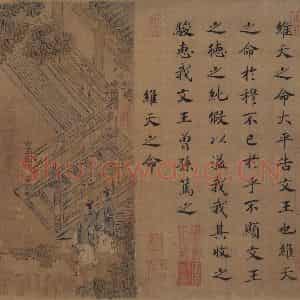 維天之命大平告文王也維天
之命於穆不已於乎不顯文王
之德之純假以溢我我其收之
駿惠我文王曾孫篤之
維天之命
Shufawang.CN